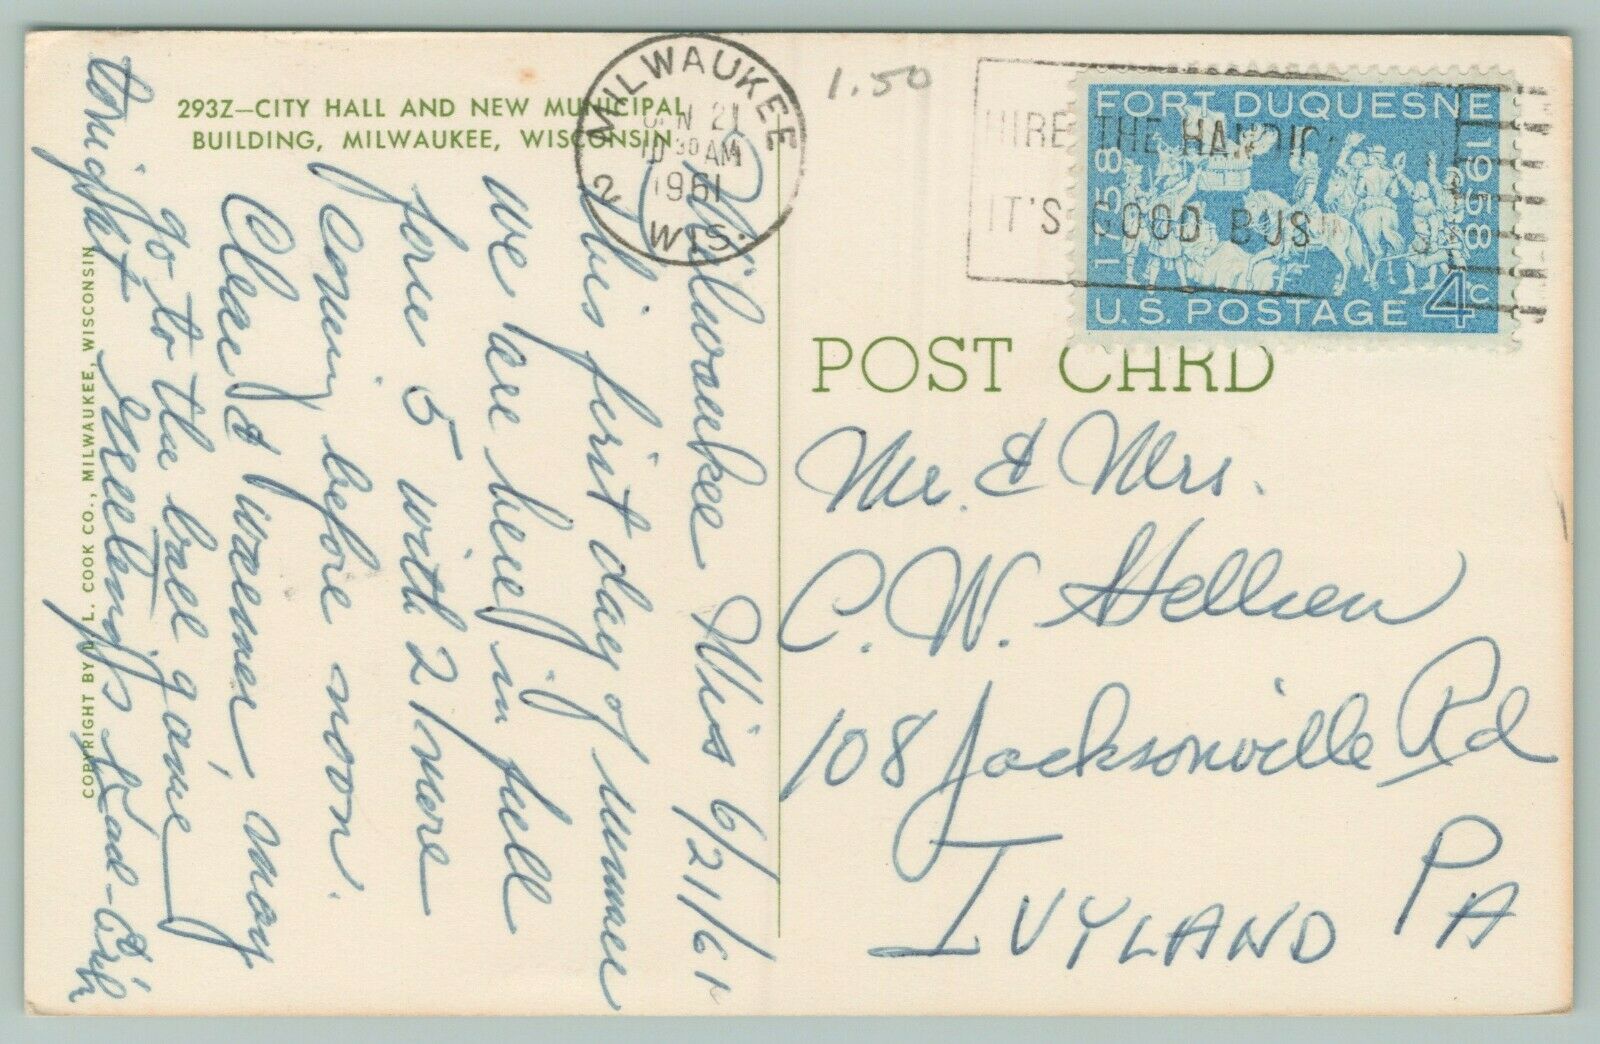 293Z—CITY HALL AND NEW MUNICIPAL
BUILDING, MILWAUKEE, WISCONSIN
MILWAUKEE
2
JUN 21
10 30 AM
1961
WIS.
1.50
HIRE THE HANDIC
IT'S GOOD BUS
FORT DUQUESNE
1758
1958
U.S. POSTAGE 4c
POST CARD
Milwaukee Wis 6/21/61
This first day of summer
we are here in full
force 5 with 2 more
coming before noon.
Clear & warmer, may
go to the ball game
tonight Greetings
Mr. & Mrs.
C. W. Hellien
108 Jacksonville Rd
IVYLAND PA
COPYRIGHT BY L. L. COOK CO., MILWAUKEE, WISCONSIN